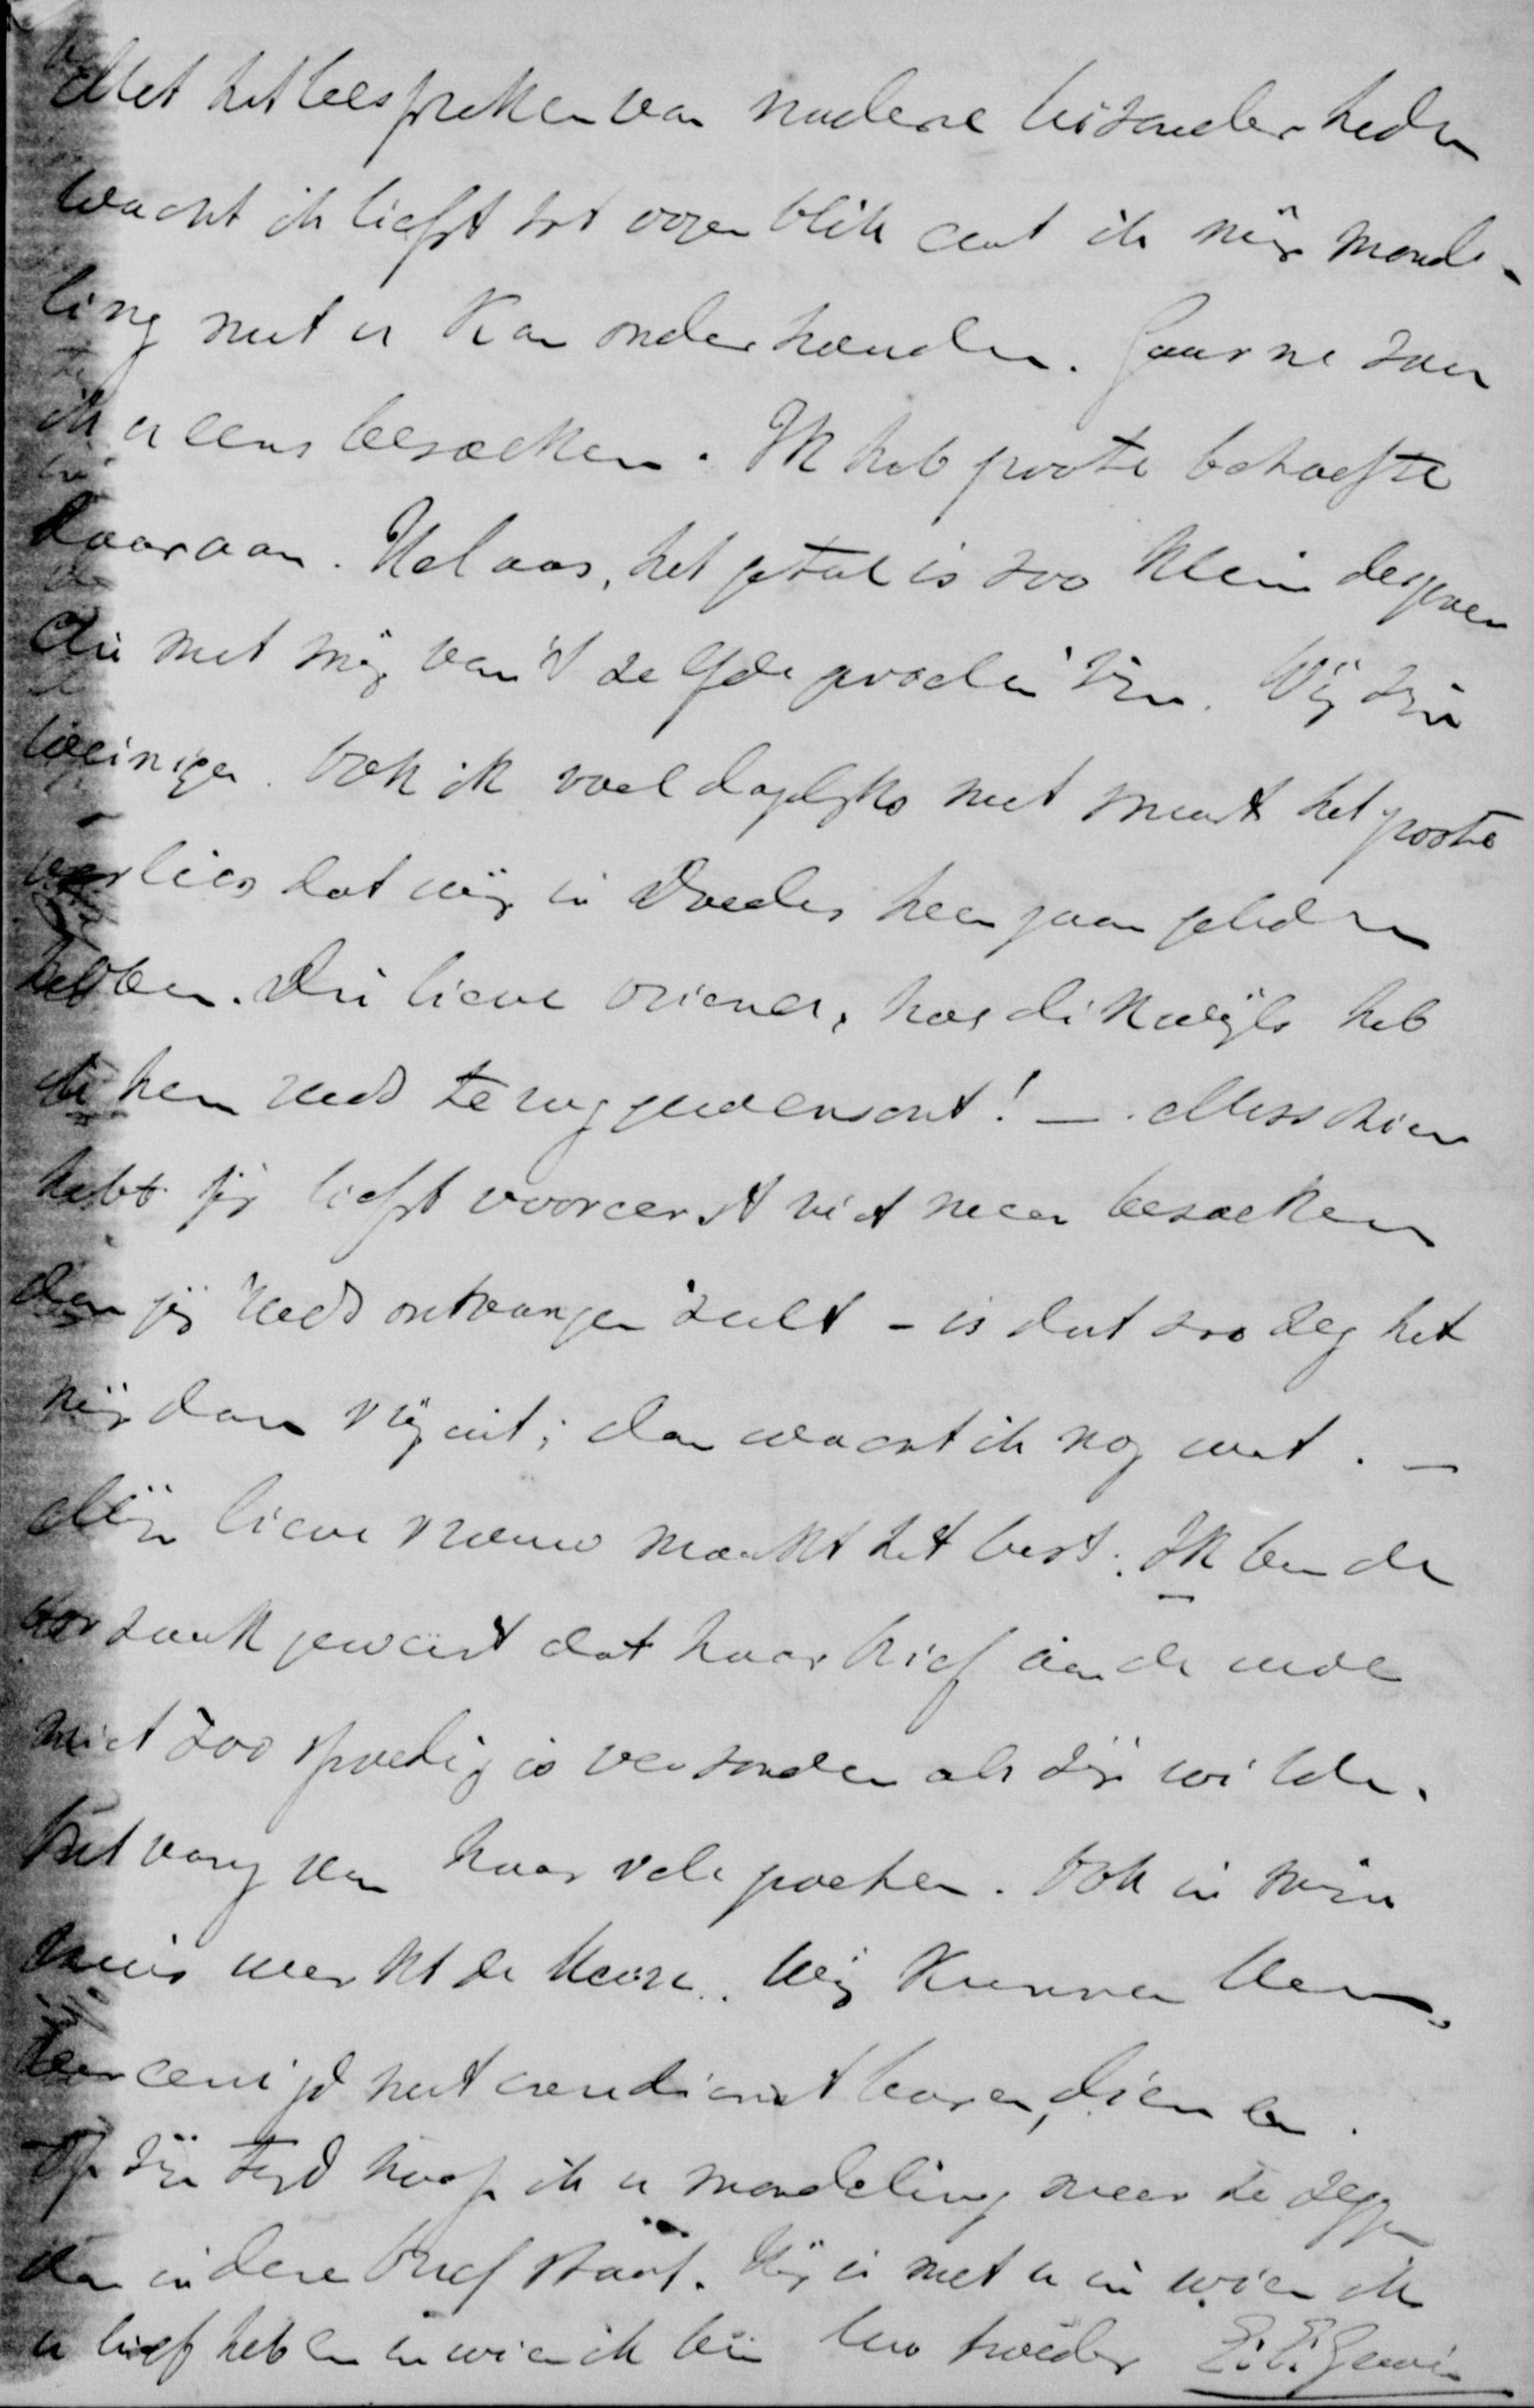 Met het bespreken van nadere bizonderheden
wacht ik liefst tot oogenblik dat ik mij monde-
ling met u kan onderhouden. Gaarne zou
ik u eens bezoeken. Ik heb groote behoefte
daaraan. Helaas, het getal is zoo klein dergenen
die met mij van 't zelfde gevoelen zijn. Wij zijn
weinigen. Ook ik voel dagelijks met smart het groote
verlies dat wij in Doedes heengaan geleden
hebben. Die lieve vriend, hoe dikwijls heb
ik hem reeds teruggewenscht! — Misschien
hebt gij liefst vooreerst niet meer bezoeken
dan gij reeds ontvangen zult – is dat zoo zeg het
mij dan vrij uit; dan wacht ik nog wat. —
Mijn lieve vrouw maakt het best. Ik ben de
oorzaak geweest dat haar brief aan de uwe
niet zoo spoedig is verzonden als zij wilde.
Ontvang van haar vele groeten. Ook in mijn
huis werkt de Heere. Wij kunnen Hem,
vereenigd met onze dienstboden, dienen.
Op zijn tijd hoop ik u mondeling meer te zeggen
dan in deze brief staat. Hij is met u in wien ik
u lief heb en in wien ik ben Uw broeder E. E. Gewin